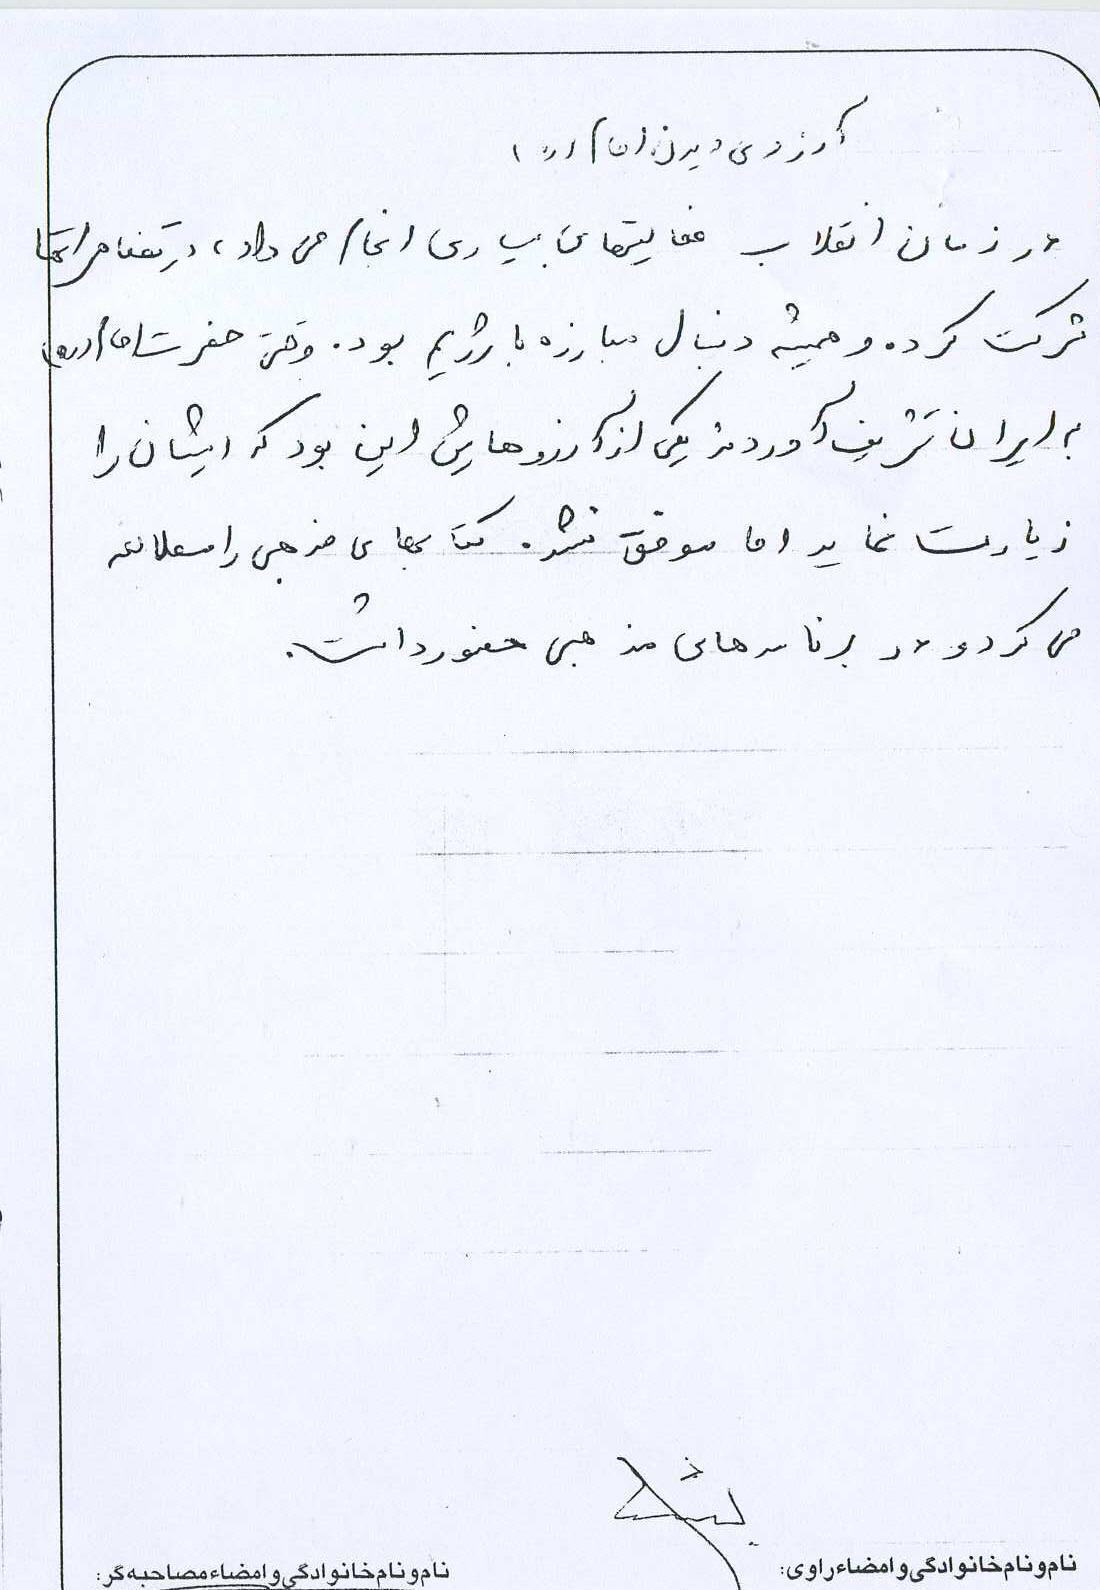 آرزوی دیدن امام (ره)
در زمان انقلاب فعالیتهای بسیاری انجام می داد، در تظاهراتها
شرکت کرده و همیشه دنبال مبارزه با رژیم بود. وقتی حضرت امام (ره)
به ایران تشریف آوردند یکی از آرزوهایش این بود که ایشان را
زیارت نماید اما موفق نشد. کتابهای مذهبی را مطالعه
می کرد و در برنامه های مذهبی حضور داشت.
نام و نام خانوادگی و امضاء راوی:
نام و نام خانوادگی و امضاء مصاحبه گر: